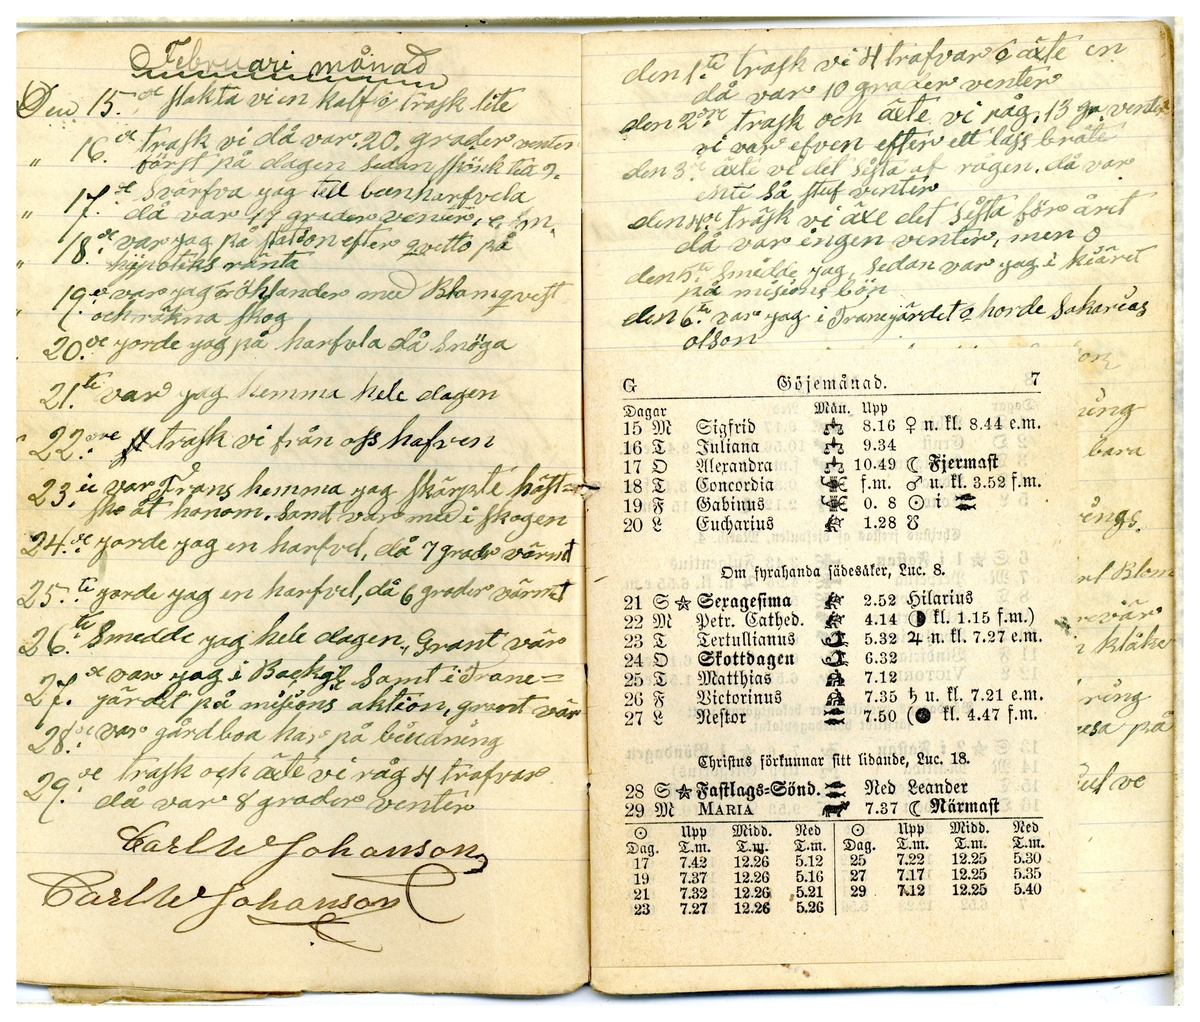 Februari månad
Den 15.de slakta vi en kalf o trask lite
" 16.de trask vi då var 20. grader venter
först på dagen sedan
" 17.de svarfva jag till benharfvela
då var 19 grader venter,
" 18.de var jag på station efter qvetto på
hijpoteks ränta
19.de var jag röhlander med Blomqvist
och räkna skog
20.de jorde jag på harfvla då snöga
21.te var jag hemma hele dagen
22.dre trask vi från oss hafren
23.ie var Frans hemma jag skärpte häst=
sko åt honom. samt var med i skogen
24.de jorde jag en harfvel, då 7 grader värmt
25.te jorde jag en harfvel, då 6 grader värmt
26.te Smedde jag hele dagen, Grant vär
27.de var jag i Backgl samt i Trane=
gärdet på misions aktion, grant vär
28.de var gårdboa har på biudning
29.de trask och äxte vi råg 4 trafvar
då var 8 grader venter
Carl W Johanson
Carl W Johanson
den 1.te trask vi 4 trafvar o äxte en
då var 10 grader venter
den 2.dre trask och äxte vi råg. 13 gr. venter
vi var efven efter ett lass bräte
den 3.ie äxte vi det sista af rågen, då var
ente så stuf venter
den 4.de träsk vi äxe det sista för året
då var ingen venter, men 0
den 5.te smidde jag, sedan var jag i kiäret
på misions bön
den 6.te var jag i Tranegärdet o horde Sakarias
olson
G Göjemånad. 7
Dagar Mån. Upp
15 M Sigfrid 8.16 ♀ n. kl. 8.44 e.m.
16 T Juliana 9.34
17 O Alexandra 10.49 ☾ Fjermast
18 T Concordia f.m. ♂ u. kl. 3.52 f.m.
19 F Gabinus 0. 8 ☉ ♓
20 L Eucharius 1.28 ☋
Om fyrahanda sädesåker, Luc. 8.
21 S ☆ Sexagesima 2.52 Hilarius
22 M Petr. Cathed. 4.14 (◑ kl. 1.15 f.m.)
23 T Tertullianus 5.32 ♃ n. kl. 7.27 e.m.
24 O Skottdagen 6.32
25 T Matthias 7.12
26 F Victorinus 7.35 ♄ u. kl. 7.21 e.m.
27 L Nestor 7.50 (● kl. 4.47 f.m.
Christus förkunnar sitt lidande, Luc. 18.
28 S ☆ Fastlags=Sönd. Ned Leander
29 M MARIA 7.37 ☾ Närmast
☉ Upp Midd. Ned ☉ Upp Midd. Ned
Dag. T.m. T.m. T.m. Dag. T.m. T.m. T.m.
17 7.42 12.26 5.12 25 7.22 12.25 5.30
19 7.37 12.26 5.16 27 7.17 12.25 5.35
21 7.32 12.26 5.21 29 7.12 12.25 5.40
23 7.27 12.26 5.26
bara